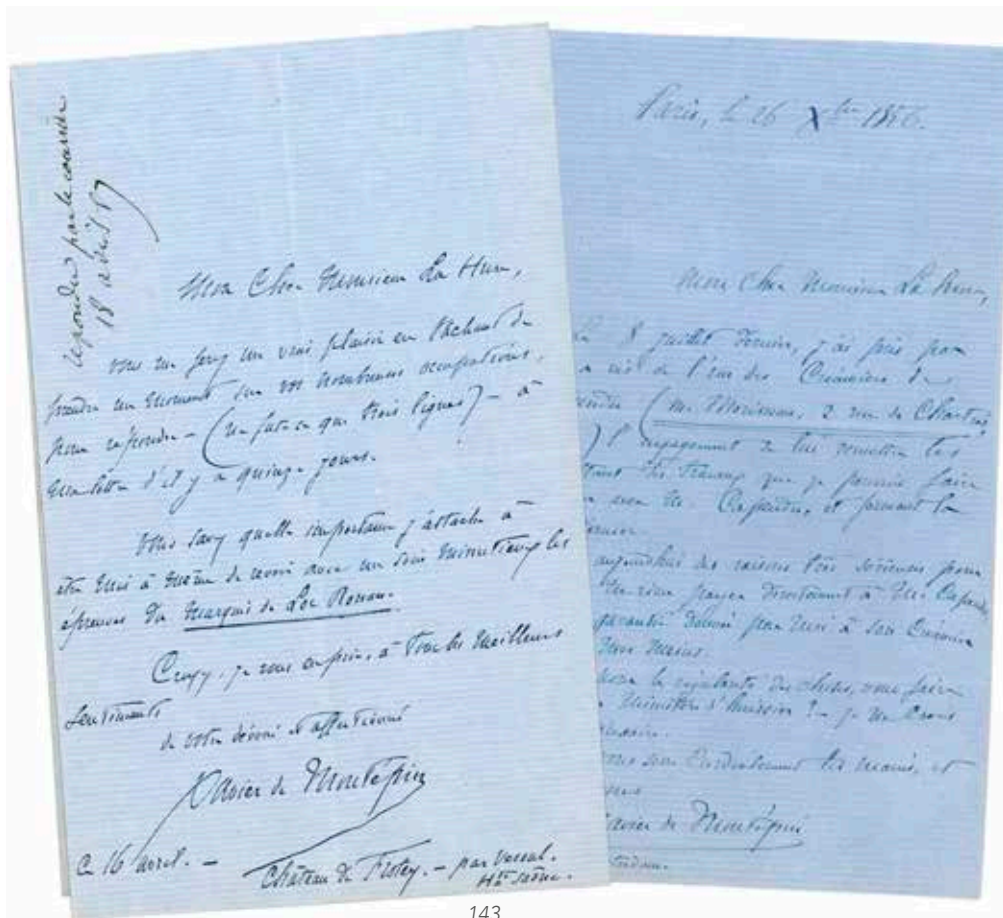 répondu par le courrier
18 avril 57
Mon Cher Monsieur La Hure,
Vous me ferez un vrai plaisir en tâchant de
prendre un moment sur vos nombreuses occupations,
pour répondre – (ne fut-ce que trois lignes) – à
ma lettre d'il y a quinze jours.
Vous savez quelle importance j'attache à
être mis à même de revoir avec un soin minutieux les
épreuves du Marquis de
Croyez, je vous en prie, à tous les meilleurs
sentiments
de votre dévoué et affectionné
Xavier de Montépin
Ce 16 avril. –
Château de Frotey. – par Vesoul.
Hte Saône.
Paris, le 26 Xbre 1856.
Mon Cher Monsieur La Hure,
8 juillet dernier, j'ai pris par
de l'un des Créanciers de
2 rue de Chartres
l'engagement de lui remettre les
des travaux que je pourrais faire
avec M. Capendu, et formant la
aujourd'hui des raisons très sérieuses pour
payer directement à M. Capendu
garantie donnée par moi à son Créancier
mains.
pour la régularité des choses, vous faire
Ministère d'huissier ? – je ne crois
cordialement les mains, et
Xavier de Montépin
143